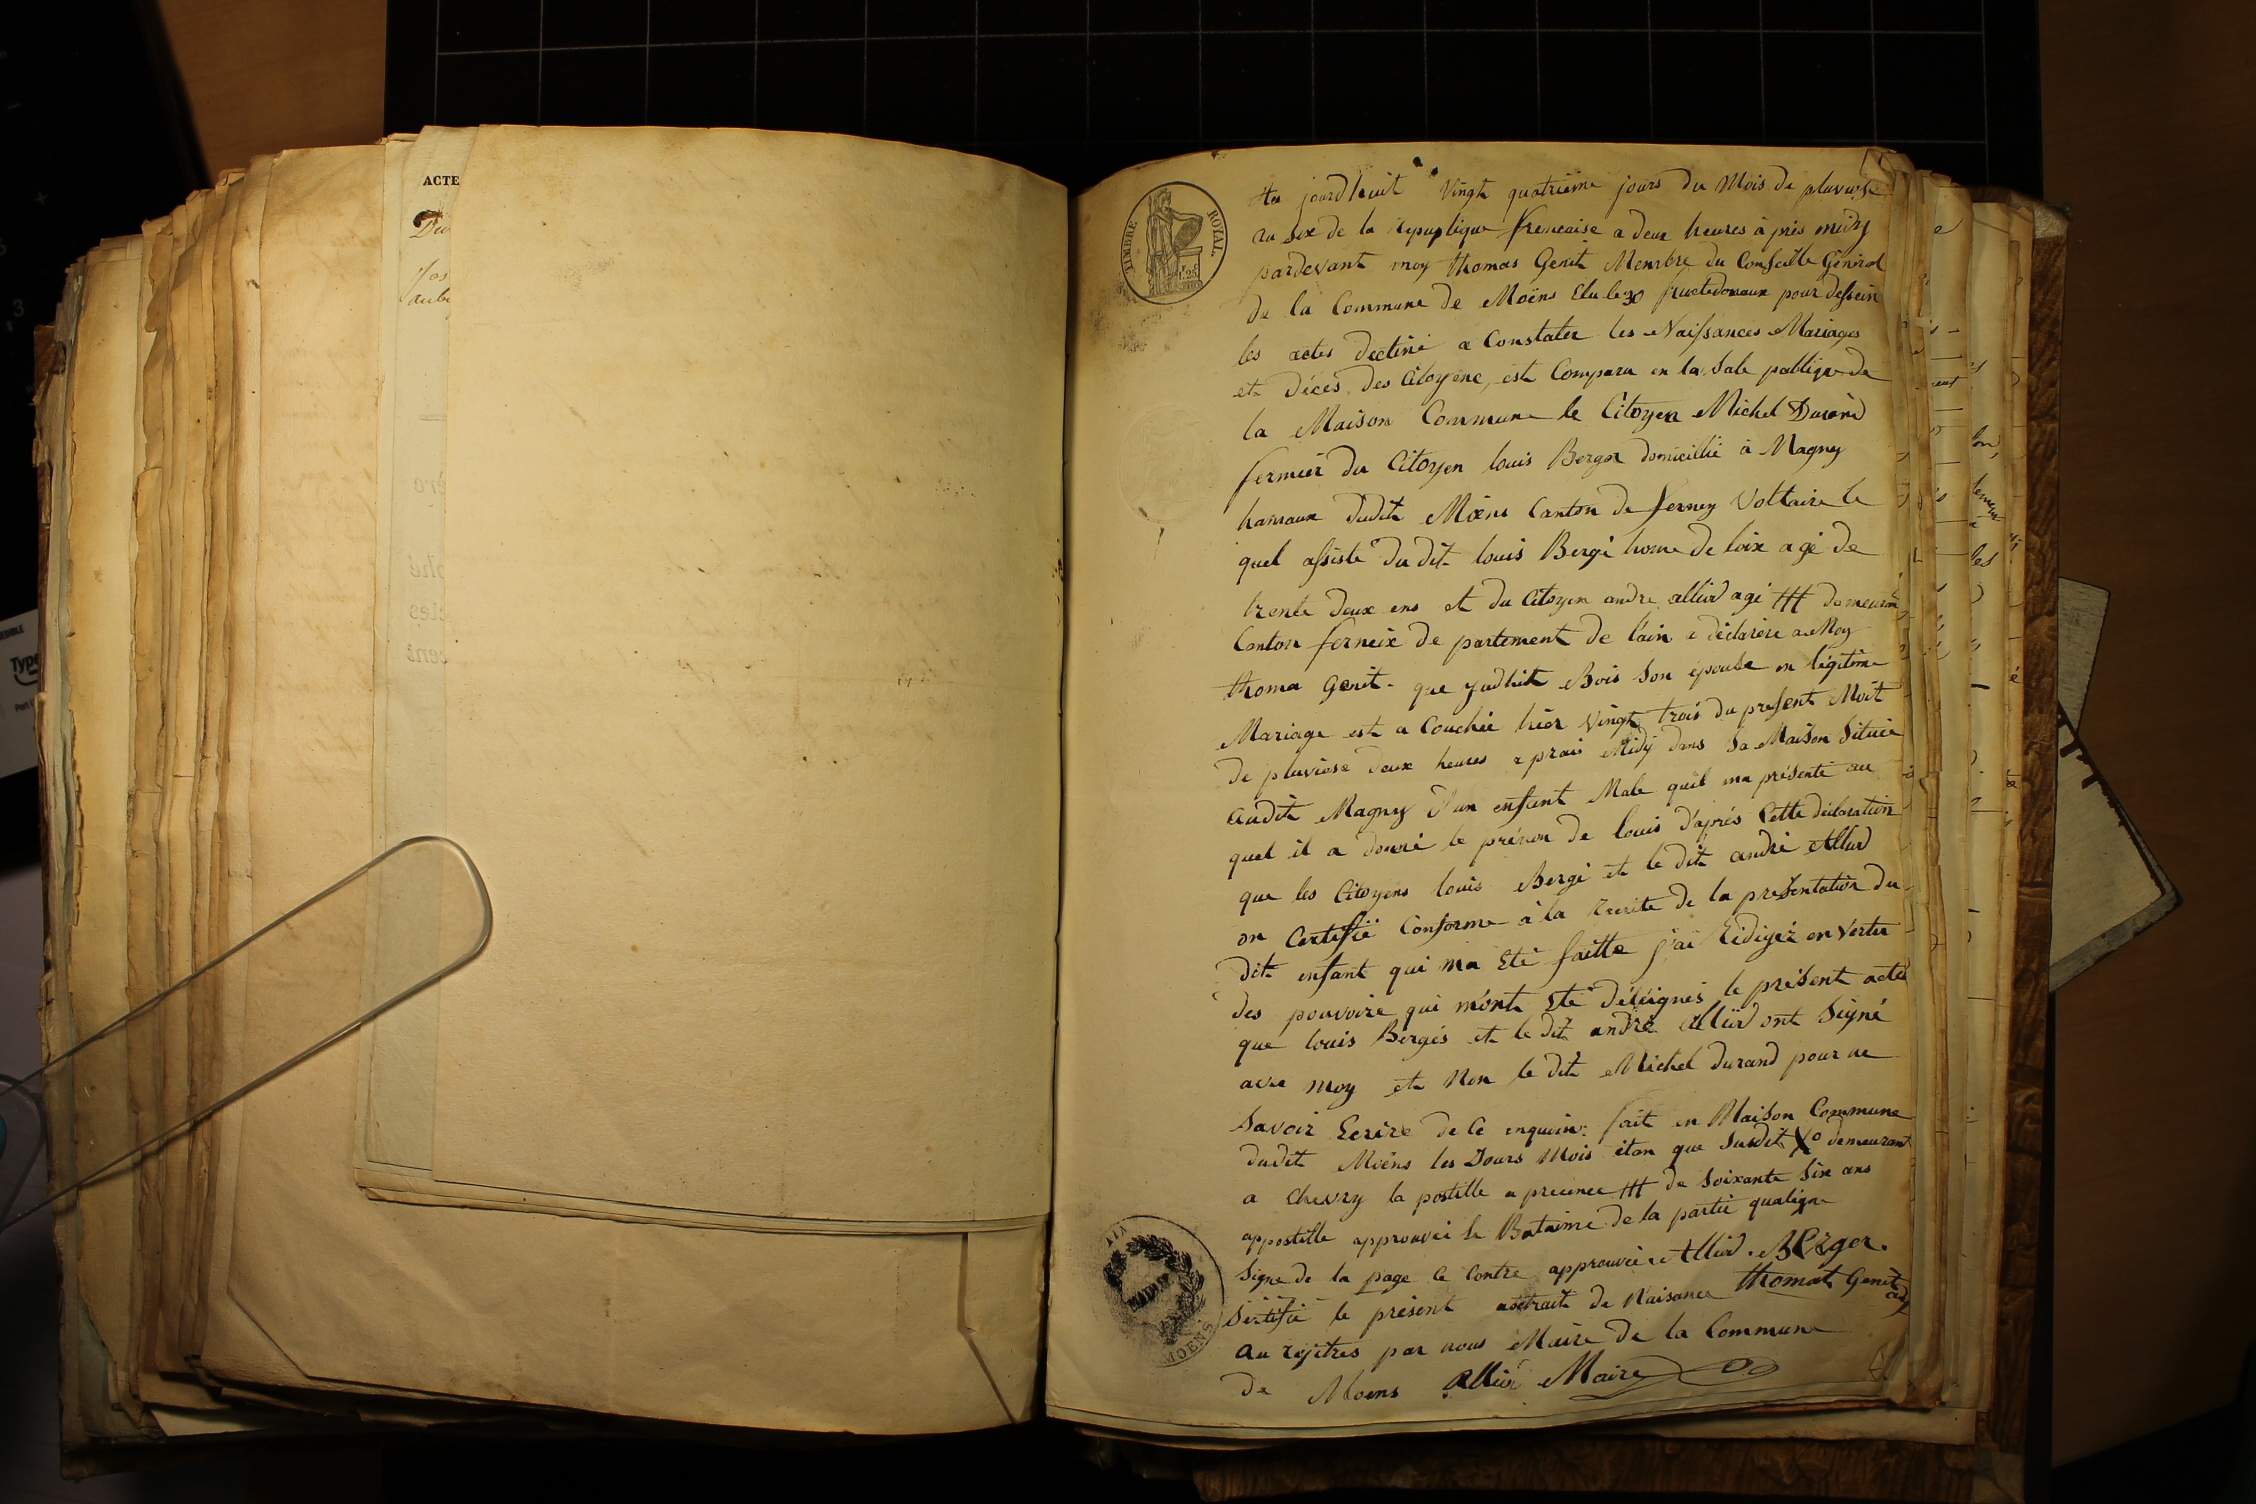 ACTE
TIMBRE ROYAL
jourdhuit Vingt quatrieme jours du Mois de pluviose
au Six de la repuplique fremcaise a deux heures à près midy
pardevant moy thomas Genit Membre du Conseille Général
de la Commune de Moëns Elu le 30 pour
les actes dectiné a Constater les Naissances Mariages
et Décès des Citoyene, est Comparu en la Sale publique de
la Maison Commune le Citoyen Michel Durand
fermier du Citoyen louis Berger domicillié à Magny
hamaux dudit Moëns Canton de ferney Voltaire le
quel assisté du dit louis Bergé home de loix agé de
trente deux ens et du Citoyen andre alliod agé ttt demeurant
Canton ferneix de partement de l'ain a déclarére a Moy
thoma Genit que Judhit Bois Son épouse en légitime
Mariage est a Couchée hier Vingt trois du present Moit
de pluviose deux heures aprais Midy dans Sa Maison Située
audit Magny d'un enfant Male quil ma présenté au
quel il a donné le prénon de louis d'après Cette déclaration
que les Citoyens louis Bergé et le dit andré Alliod
on Certifié Conforme à la de la présentation du
dit enfant qui ma Eté faitte j'ai Rédigéz en Vertu
des pouvoire qui m'ont Eté déléignés le présent acte
que louis Bergés et le dit andré Alliod ont Signé
avec moy et Non le dit Michel Durand pour ne
Savoir Ecrire de Ce enquein: fait en Maison Commune
dudit Moëns les Jours Mois etan que Susdit Xo demeurant
a Chevry la postille a precence ttt de Soixante Six ans
appostille approuvéi le Bataime de la partie qualigne
Signe de la page Ce Contre approuvée Alliod . Berger .
Sértifié le présent de Naisance thomat Genit
au rejitres par nous Maire de la Commune
de Moens Alliod Maire
MAIRIE
MOENS